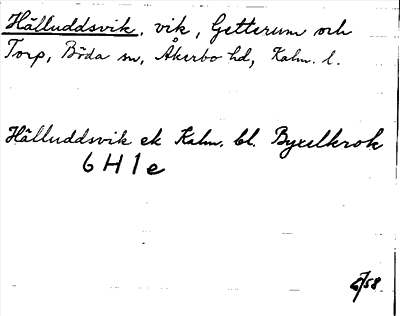 Hälluddsvik, vik, Getterum och
Torp, Böda sn, Åkerbo hd, Kalm. l.
Hälluddsvik ek Kalm. bl. Byxelkrok
6 H 1 e
6/58